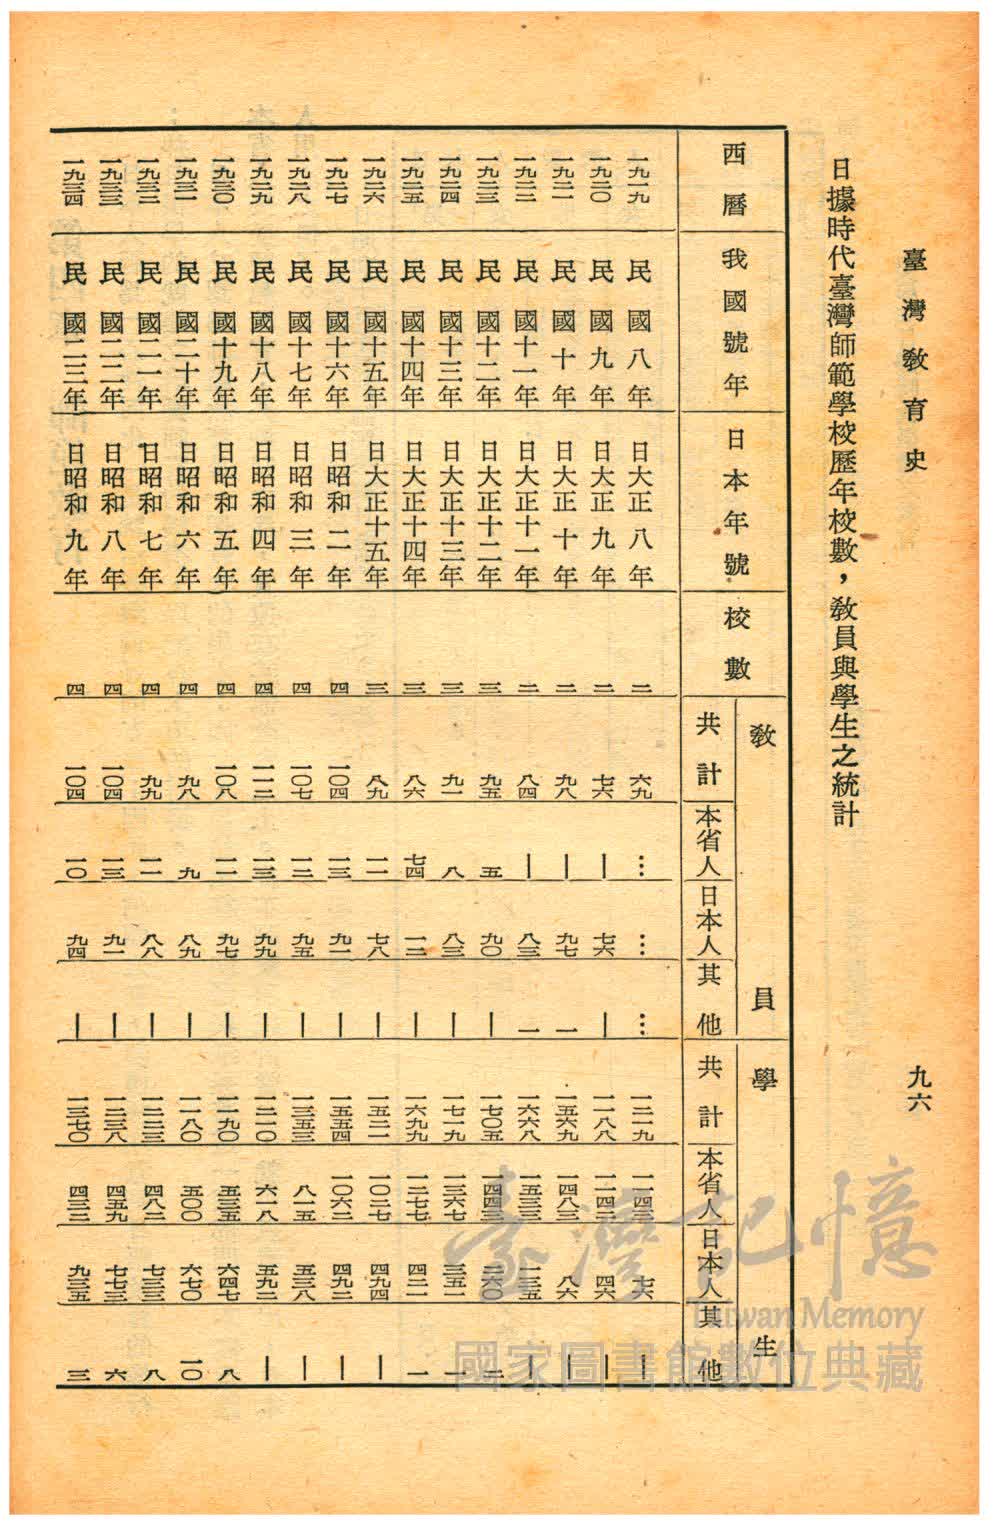 臺灣教育史
九六
日據時代臺灣師範學校歷年校數，教員與學生之統計
西曆 我國號年 日本年號 校數 教員 學生
共計 本省人 日本人 其他 共計 本省人 日本人 其他
一九一九 民國八年 日大正八年 二 六九 … … … 一二一九 一一四三 七六 —
一九二〇 民國九年 日大正九年 二 七六 — 七六 — 一一八八 一一四二 四六 —
一九二一 民國十年 日大正十年 二 九八 — 九七 一 一五六九 一四八三 八六 —
一九二二 民國十一年 日大正十一年 二 八四 — 八三 一 一六六八 一五三三 一三五 —
一九二三 民國十二年 日大正十二年 三 九五 五 九〇 — 一七〇五 一四四三 二六〇 二
一九二四 民國十三年 日大正十三年 三 九一 八 八三 — 一七一九 一三六七 三五一 一
一九二五 民國十四年 日大正十四年 三 八六 七四 一二 — 一六九九 一二七七 四二一 一
一九二六 民國十五年 日大正十五年 三 八九 一一 七八 — 一五二一 一〇二七 四九四 —
一九二七 民國十六年 日昭和二年 四 一〇四 一三 九一 — 一五五四 一〇六二 四九二 —
一九二八 民國十七年 日昭和三年 四 一〇七 一二 九五 — 一三五三 八一五 五三八 —
一九二九 民國十八年 日昭和四年 四 一一二 一三 九九 — 一二一〇 六一八 五九二 —
一九三〇 民國十九年 日昭和五年 四 一〇八 一一 九七 — 一一九〇 五三五 六四七 八
一九三一 民國二十年 日昭和六年 四 九八 九 八九 — 一一八〇 五〇〇 六七〇 一〇
一九三二 民國二一年 日昭和七年 四 九九 一一 八八 — 一二二三 四八二 七三三 八
一九三三 民國二二年 日昭和八年 四 一〇四 一三 九一 — 一二三八 四五九 七七三 六
一九三四 民國二三年 日昭和九年 四 一〇四 一〇 九四 — 一三七〇 四三二 九三五 三
臺灣記憶
Taiwan Memory
國家圖書館數位典藏